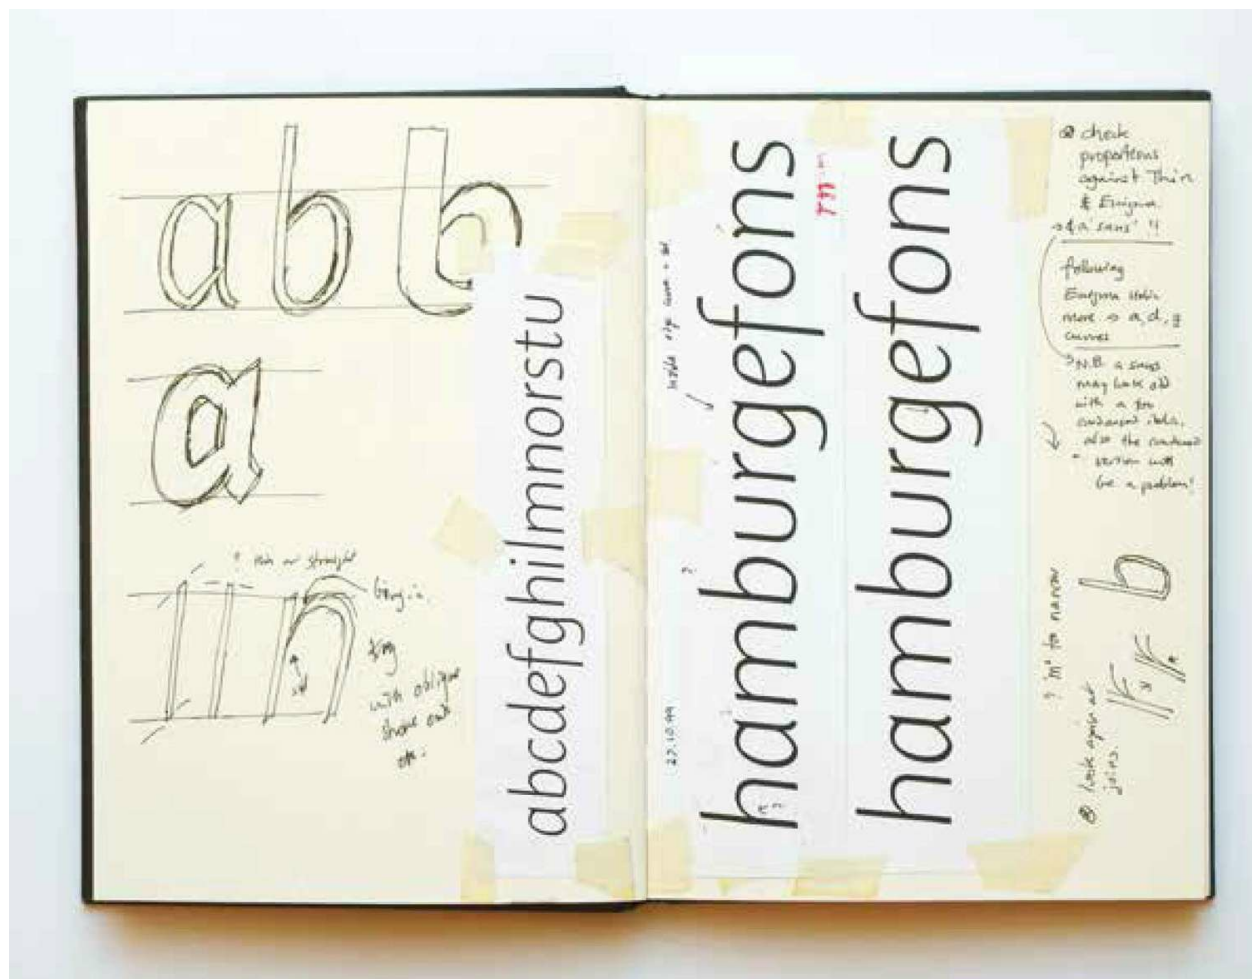 a b b
a
? thin or straight
try
with oblique
stroke end
abcdefghilmnorstu
inside edge curve
27.10.99
hamburgefons
hamburgefons
check
proportions
against Thin
& Enigma.
a sans' !!
following
Enigma italic
more → a, d, g
curves
N.B. a sans
may look odd
with a too
condensed italic.
also the condensed
version will
be a problem!
b
? 'm' too narrow
look again at
joins.